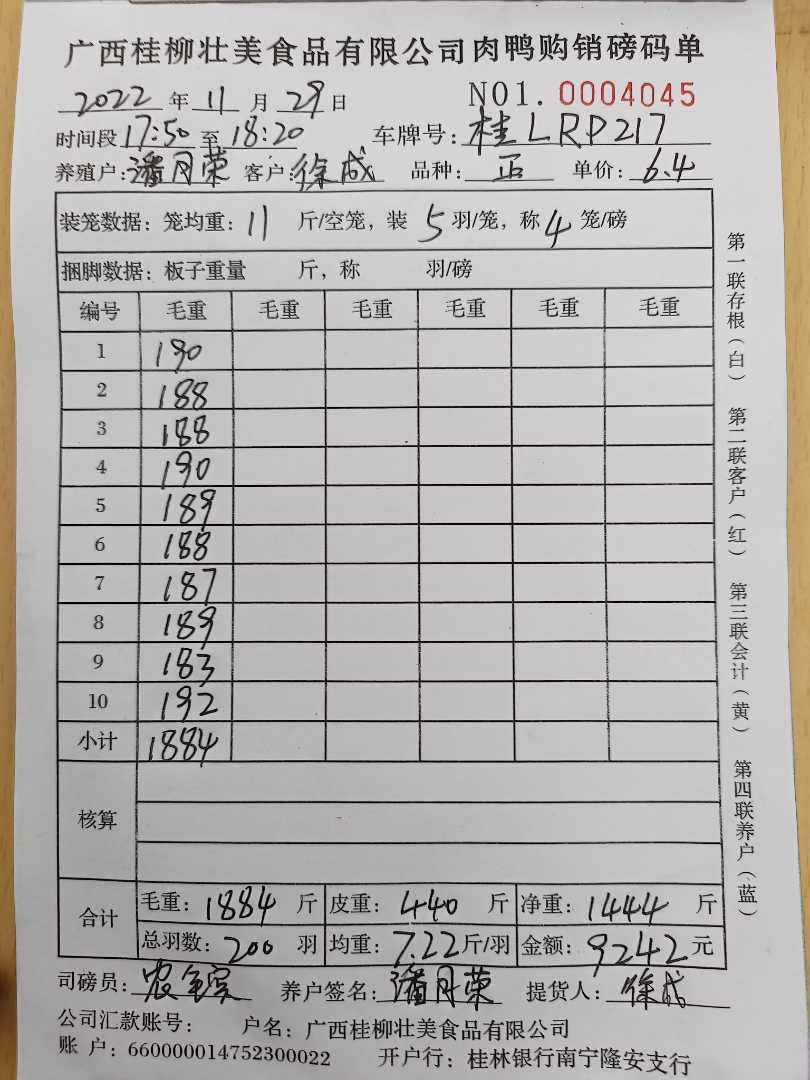 广西桂柳壮美食品有限公司肉鸭购销磅码单
2022 年 11 月 29 日 NO1. 0004045
时间段 17:50 至 18:20 车牌号: 桂LRP217
养殖户: 潘月荣 客户: 徐成 品种: 正 单价: 6.4
装笼数据: 笼均重: 11 斤/空笼, 装 5 羽/笼, 称 4 笼/磅
捆脚数据: 板子重量 斤, 称 羽/磅
编号 毛重 毛重 毛重 毛重 毛重 毛重
1 190
2 188
3 188
4 190
5 189
6 188
7 187
8 189
9 183
10 192
小计 1884
核算
合计 毛重: 1884 斤 皮重: 440 斤 净重: 1444 斤
总羽数: 200 羽 均重: 7.22 斤/羽 金额: 9242 元
司磅员: 农 养户签名: 潘月荣 提货人: 徐成
公司汇款账号: 户名: 广西桂柳壮美食品有限公司
账 户: 660000014752300022 开户行: 桂林银行南宁隆安支行
第一联存根(白) 第二联客户(红) 第三联会计(黄) 第四联养户(蓝)